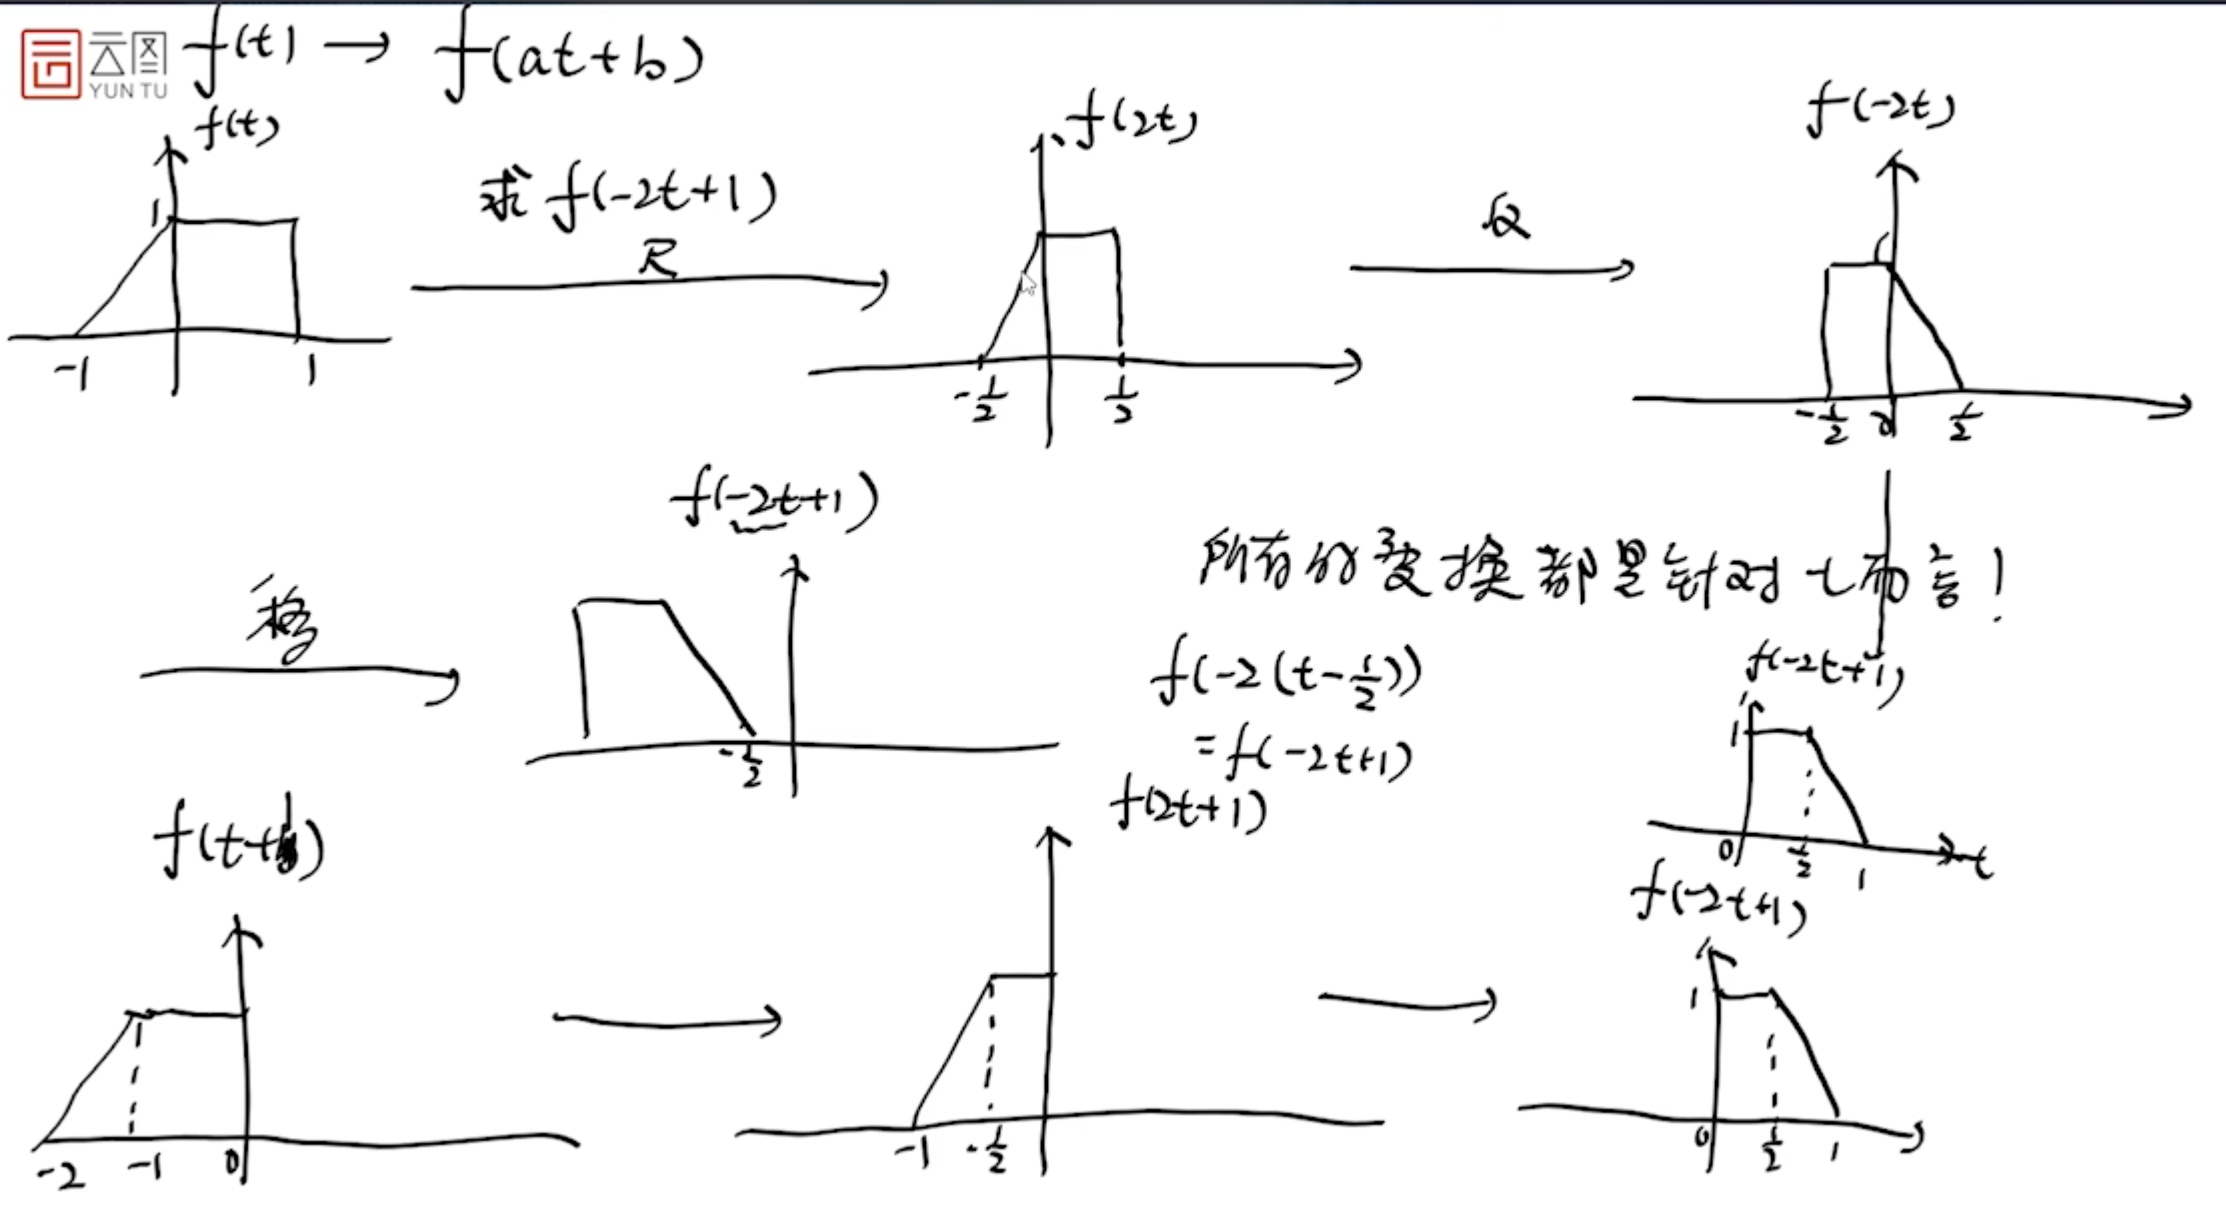 云图
YUN TU
f(t) → f(at+b)
f(t)
1
-1
1
求 f(-2t+1)
f(2t)
-1/2
1/2
反
f(-2t)
1
-1/2
0
1/2
移
f(-2t+1)
-1/2
所有的变换都是针对t而言!
f(-2(t-1/2))
=f(-2t+1)
f(-2t+1)
1
0
1/2
1
t
f(t+1)
-2
-1
0
f(2t+1)
-1
-1/2
f(-2t+1)
1
0
1/2
1